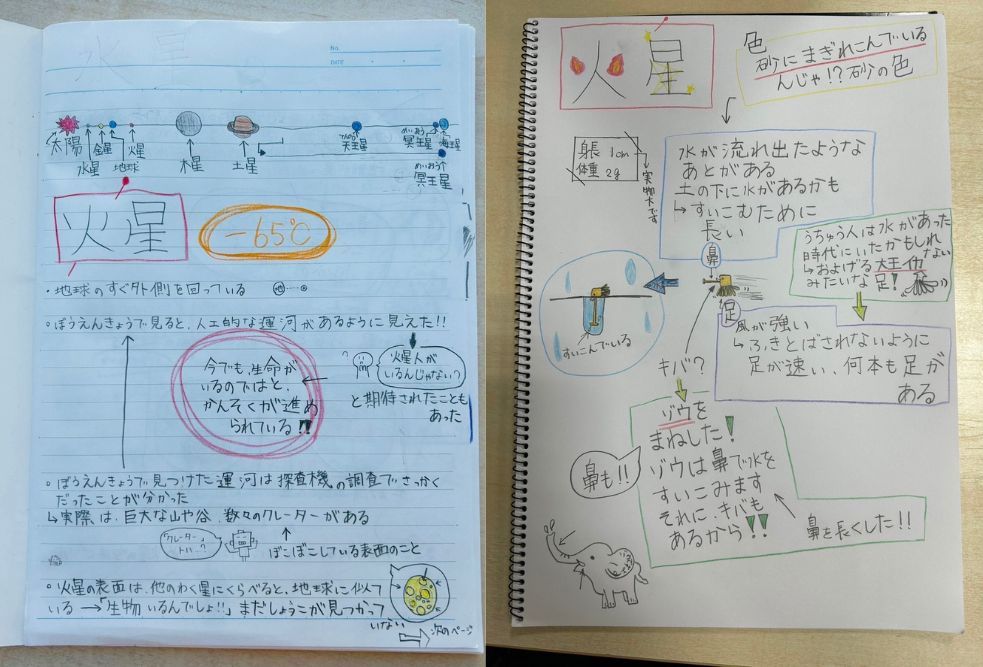 水星
NO.
DATE
太陽
水星
金星
地球
火星
木星
土星
天王星
めいおう
冥王星
海王星
めいおう
冥王星
火星
-65℃
・地球のすぐ外側を回っている
地
・ぼうえんきょうで見ると、人工的な運河があるように見えた!!
今でも、生命が
いるのではと、
かんそくが進め
られている!!
火星人が
いるんじゃない?
と期待されたことも
あった
・ぼうえんきょうで見つけた運河は探査機の調査でさっかく
だったことが分かった
↳実際は、巨大な山や谷、数々のクレーターがある
クレーター
トハ?
ぼこぼこしている表面のこと
・火星の表面は、他のわく星にくらべると、地球に似て
いる→「生物いるんでしょ!!」まだしょうこが見つかって
いない
次のページ
火星
色
砂にまぎれこんでいる
んじゃ!?砂の色
身長 1cm
体重 2g
実物大です
水が流れ出たような
あとがある
土の下に水があるかも
↳すいこむために
長い
鼻
うちゅう人は水があった
時代にいたかもしれない
↳およげる大王イカ
みたいな足!
すいこんでいる
足
風が強い
↳ふきとばされないように
足が速い、何本も足が
ある
キバ?
ゾウを
まねした!
ゾウは鼻で水を
すいこみます
それに、キバも
あるから!!
鼻も!!
鼻を長くした!!